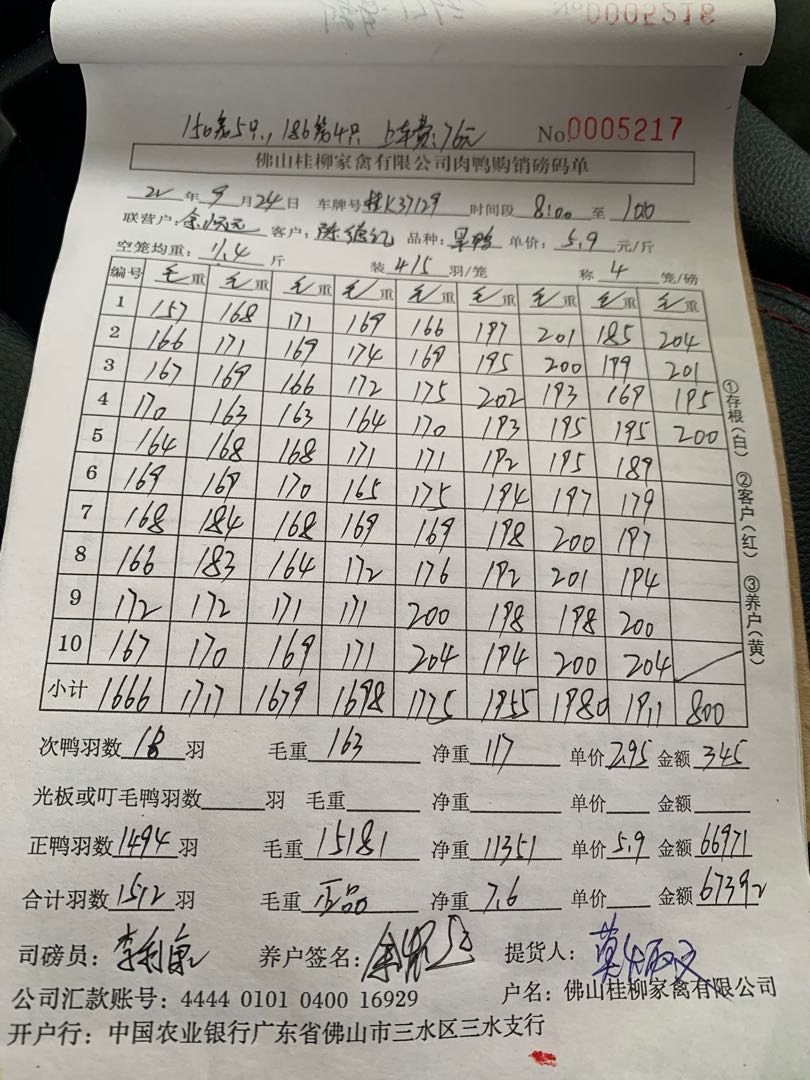 No 0005216
150笼5只,186笼4只 上车费:76元 No.0005217
佛山桂柳家禽有限公司肉鸭购销磅码单
22 年 9 月 24 日 车牌号 桂K37129 时间段 8:00 至 1:00
联营户: 客户: 品种: 单价: 5.9 元/斤
空笼均重: 11.4 斤 装 4/5 羽/笼 称 4 笼/磅
编号 毛重 毛重 毛重 毛重 毛重 毛重 毛重 毛重 毛重
1 157 168 171 169 166 197 201 185 204
2 166 171 169 174 169 195 200 199 201
3 167 169 166 172 175 202 193 169 195
4 170 163 163 164 170 193 195 195 200
5 164 168 168 171 171 192 195 189
6 169 169 170 165 175 194 197 179
7 168 184 168 169 169 198 200 197
8 166 183 164 172 176 192 201 194
9 172 172 171 171 200 198 198 200
10 167 170 169 171 204 194 200 204
小计 1666 1717 1679 1698 1775 1955 1980 1911 800
次鸭羽数 18 羽 毛重 163 净重 117 单价 2.95 金额 345
光板或叮毛鸭羽数 羽 毛重 净重 单价 金额
正鸭羽数 1494 羽 毛重 15181 净重 11351 单价 5.9 金额 66971
合计羽数 1512 羽 毛重 正品 净重 7.6 单价 金额 67392
司磅员: 李利康 养户签名: 提货人:
公司汇款账号: 4444 0101 0400 16929 户名: 佛山桂柳家禽有限公司
开户行: 中国农业银行广东省佛山市三水区三水支行
①存根(白) ②客户(红) ③养户(黄)